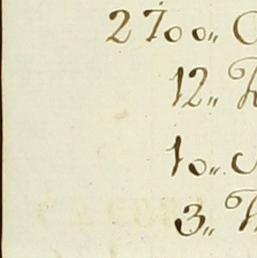 2700„
12„
10„
3„